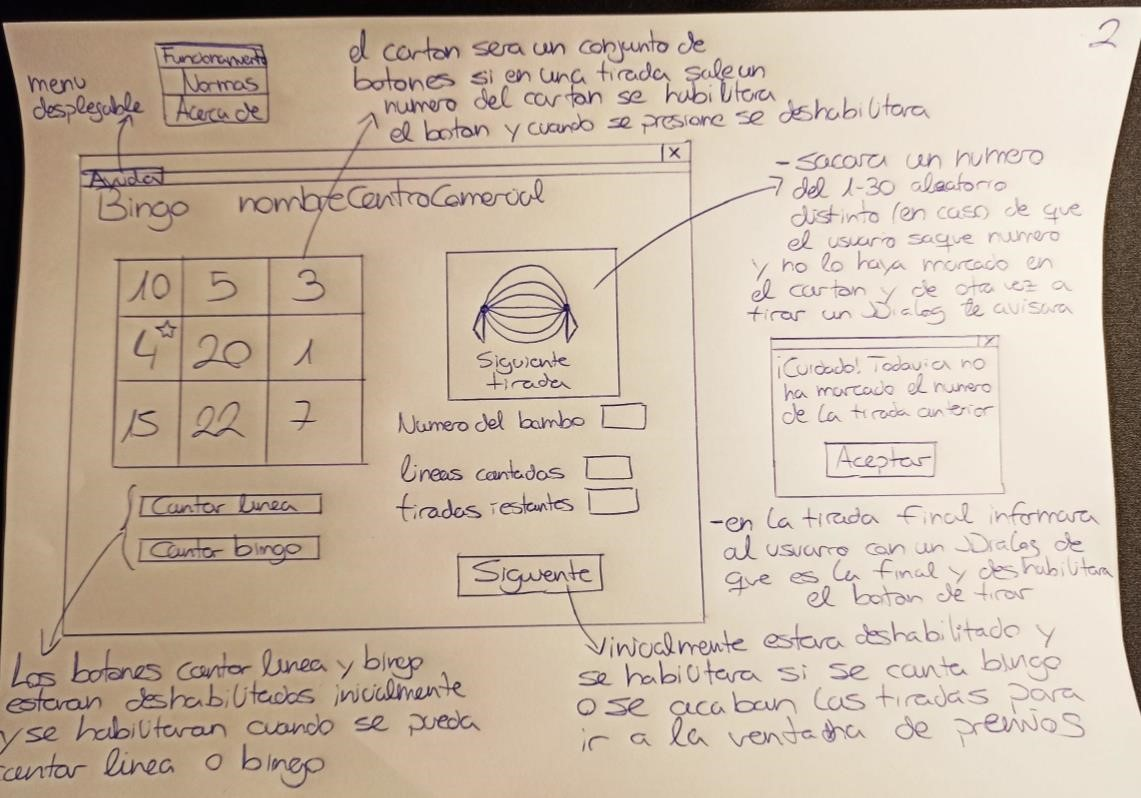 2
menu
desplegable
Funcionamiento
Normas
Acerca de
el carton sera un conjunto de
botones si en una tirada sale un
numero del carton se habilitara
el boton y cuando se presione se deshabilitara
X
Ayuda
Bingo nombreCentroComercial
10 5 3
4 20 1
15 22 7
Siguiente
tirada
Numero del bombo
lineas cantadas
tiradas restantes
Cantar linea
Cantar bingo
Siguiente
- sacara un numero
del 1-30 aleatorio
distinto (en caso de que
el usuario saque numero
y no lo haya marcado en
el carton y de otra vez a
tirar un JDialog te avisara
X
¡Cuidado! Todavia no
ha marcado el numero
de la tirada anterior
Aceptar
- en la tirada final informara
al usuario con un JDialog de
que es la final y deshabilitara
el boton de tirar
Los botones cantar linea y bingo
estaran deshabilitados inicialmente
y se habilitaran cuando se pueda
cantar linea o bingo
inicialmente estara deshabilitado y
se habilitara si se canta bingo
o se acaban las tiradas para
ir a la ventana de premios